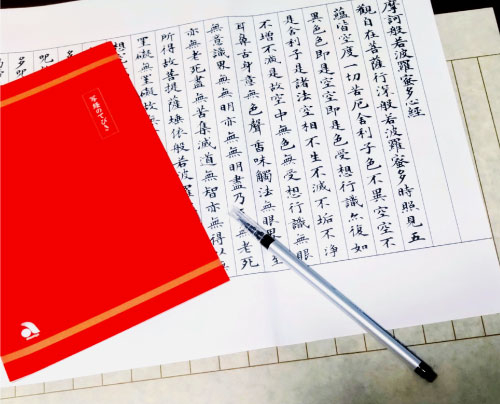 摩訶般若波羅蜜多心經
觀自在菩薩行深般若波羅蜜多時照見五
蘊皆空度一切苦厄舍利子色不異空空不
異色色即是空空即是色受想行識亦復如
是舍利子是諸法空相不生不滅不垢不淨
不增不減是故空中無色無受想行識無眼
耳鼻舌身意無色聲香味觸法無眼界至
無意識界無無明亦無無明盡乃無老死
亦無老死盡無苦集滅道無智亦無得以無
所得故菩提薩埵依般若波羅
罣礙無罣礙故無
想
写経のてびき